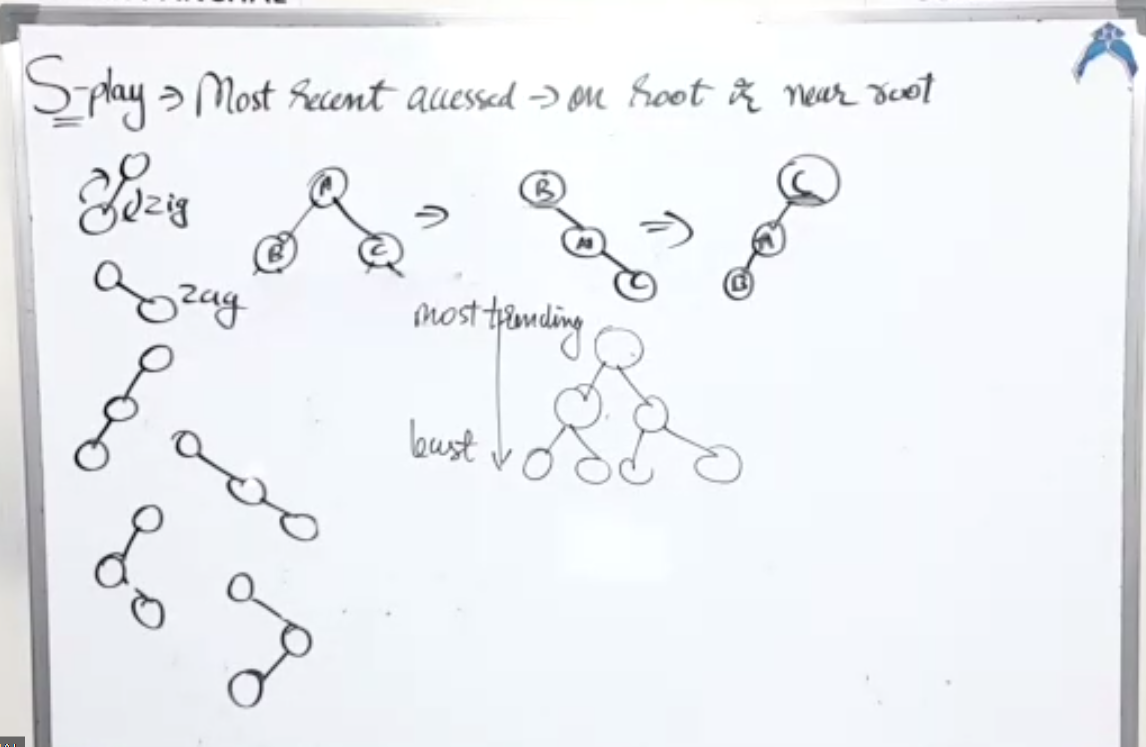 S-play ⇒ Most recent accessed → on root or near root
zig
A
B
C
⇒
B
A
C
⇒
C
A
B
zag
most trending
least